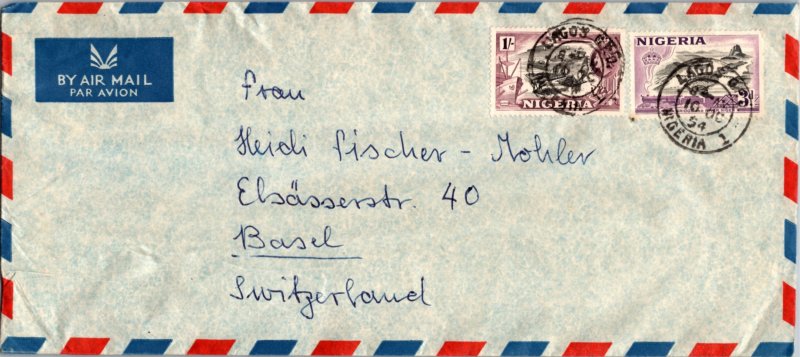 BY AIR MAIL
PAR AVION
1/-
NIGERIA
LAGOS G.P.O.
NIGERIA
3d
LAGOS
10 OC
54
NIGERIA 1
Frau
Heidi Fischer-Mohler
Elsässerstr. 40
Basel
Switzerland